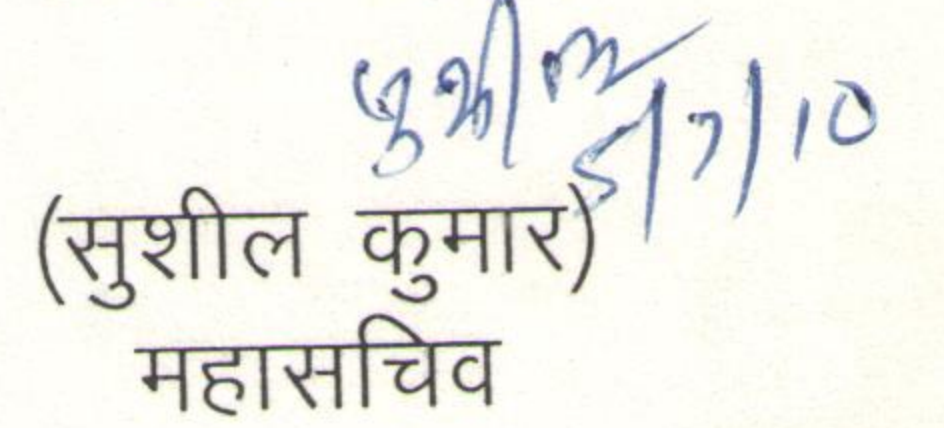 सुशील
5/7/10
(सुशील कुमार)
महासचिव